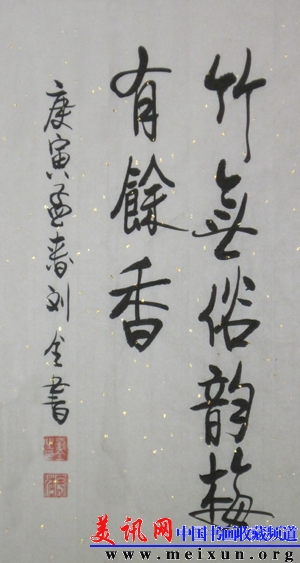 竹無俗韵梅
有餘香
庚寅孟春刘全書
美讯网中国书画收藏频道
www.meixun.org